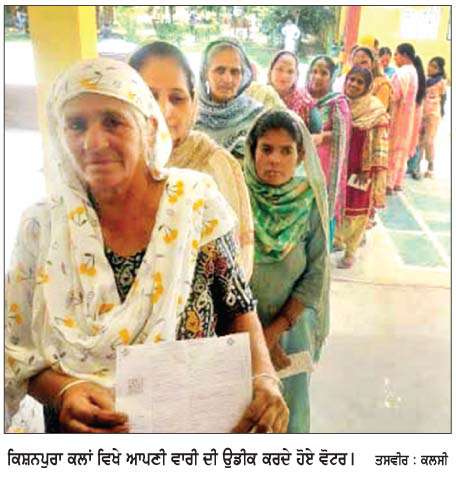 ਕਿਸ਼ਨਪੁਰਾ ਕਲਾਂ ਵਿਖੇ ਆਪਣੀ ਵਾਰੀ ਦੀ ਉਡੀਕ ਕਰਦੇ ਹੋਏ ਵੋਟਰ। ਤਸਵੀਰ : ਕਲਸੀ